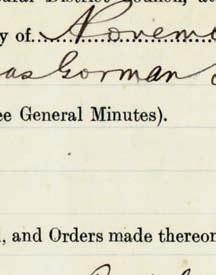 ral District Council, at
y of November
as Gorman
ee General Minutes).
, and Orders made thereon